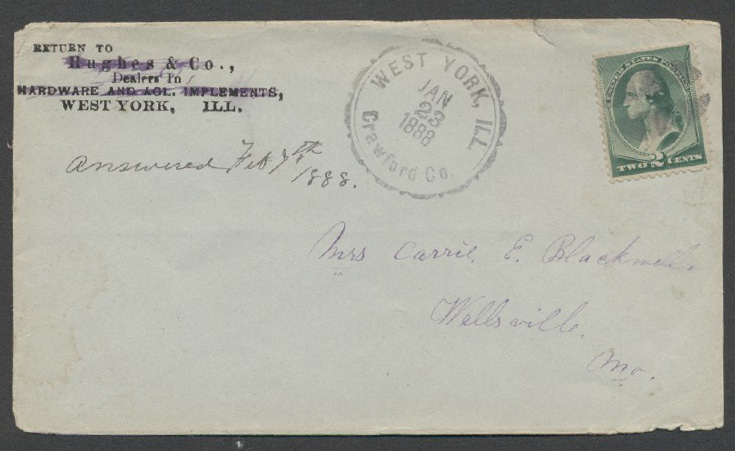 RETURN TO
Hughes & Co.,
Dealers in
HARDWARE AND AGL. IMPLEMENTS,
WEST YORK, ILL.
WEST YORK, ILL.
JAN
23
1888
Crawford Co.
UNITED STATES POSTAGE
TWO 2 CENTS
answered Feb 7th
1888.
Mrs Carrie. E. Blackwell,
Wellsville.
Mo.